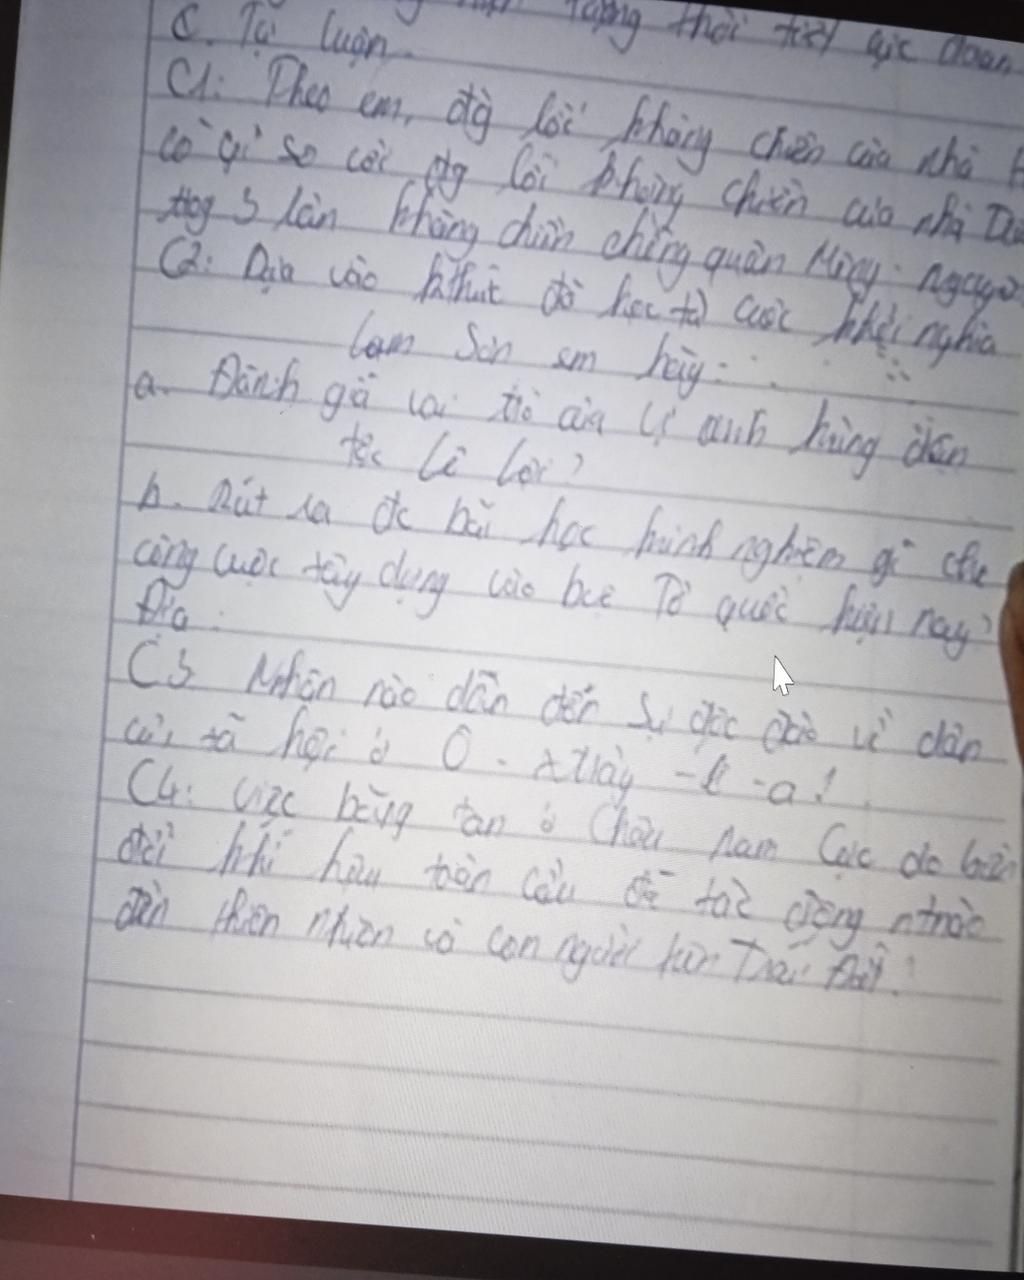 tượng thời tiết cực đoan
C. Tự luận.
C1: Theo em, đg lối kháng chiến của nhà
có gì so với đg lối kháng chiến của nhà
tiog 3 lần kháng chiến chống quân Mông - nguyê
C2: Dựa vào kthuc đã học từ cuộc khởi nghĩa
Lam Sơn em hãy:
a. Đánh giá vai trò của vị anh hùng dân
tộc Lê Lợi?
b. Rút ra đc bài học kinh nghiệm gì cho
công cuộc xây dựng vào bve Tổ quốc hiện nay?
Địa
C3 Nhân nào dẫn đến sự độc đáo về dân
cư, xã hội ở Ô - xtrây - li - a?
C4: Việc băng tan ở Châu Nam Cực do biến
đổi khí hậu toàn cầu đã tác động ntnào
đến thiên nhiên và con người trên Trái Đất?